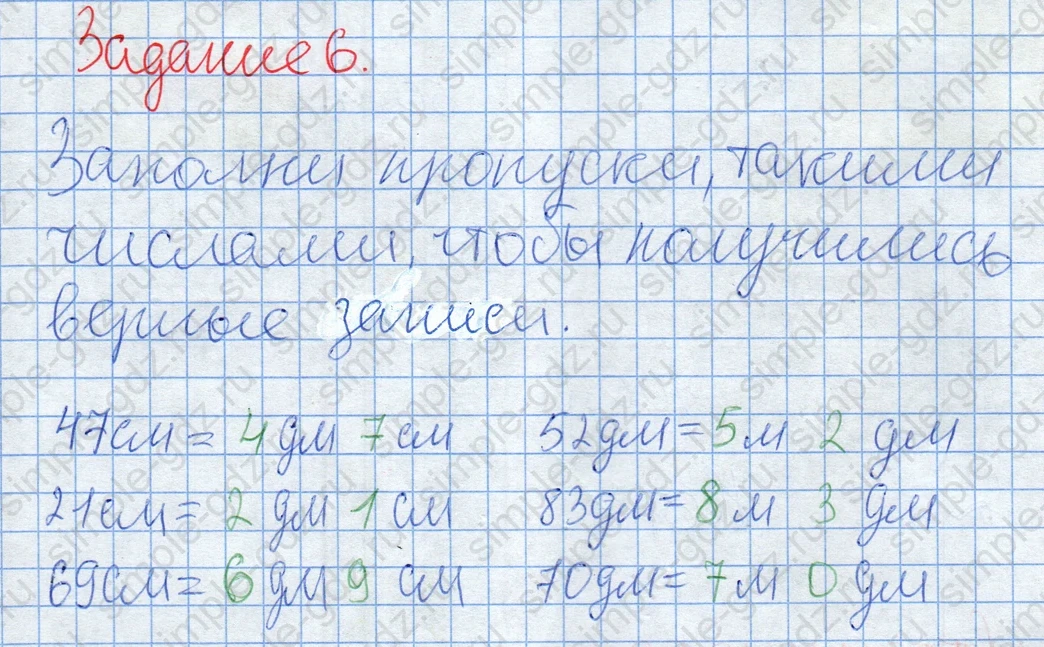 Задание 6.
Заполни пропуски, такими
числами, чтобы получились
верные записи.
47см = 4 дм 7 см 52дм = 5 м 2 дм
21см = 2 дм 1 см 83дм = 8 м 3 дм
69см = 6 дм 9 см 70дм = 7 м 0 дм
simple-gdz.ru